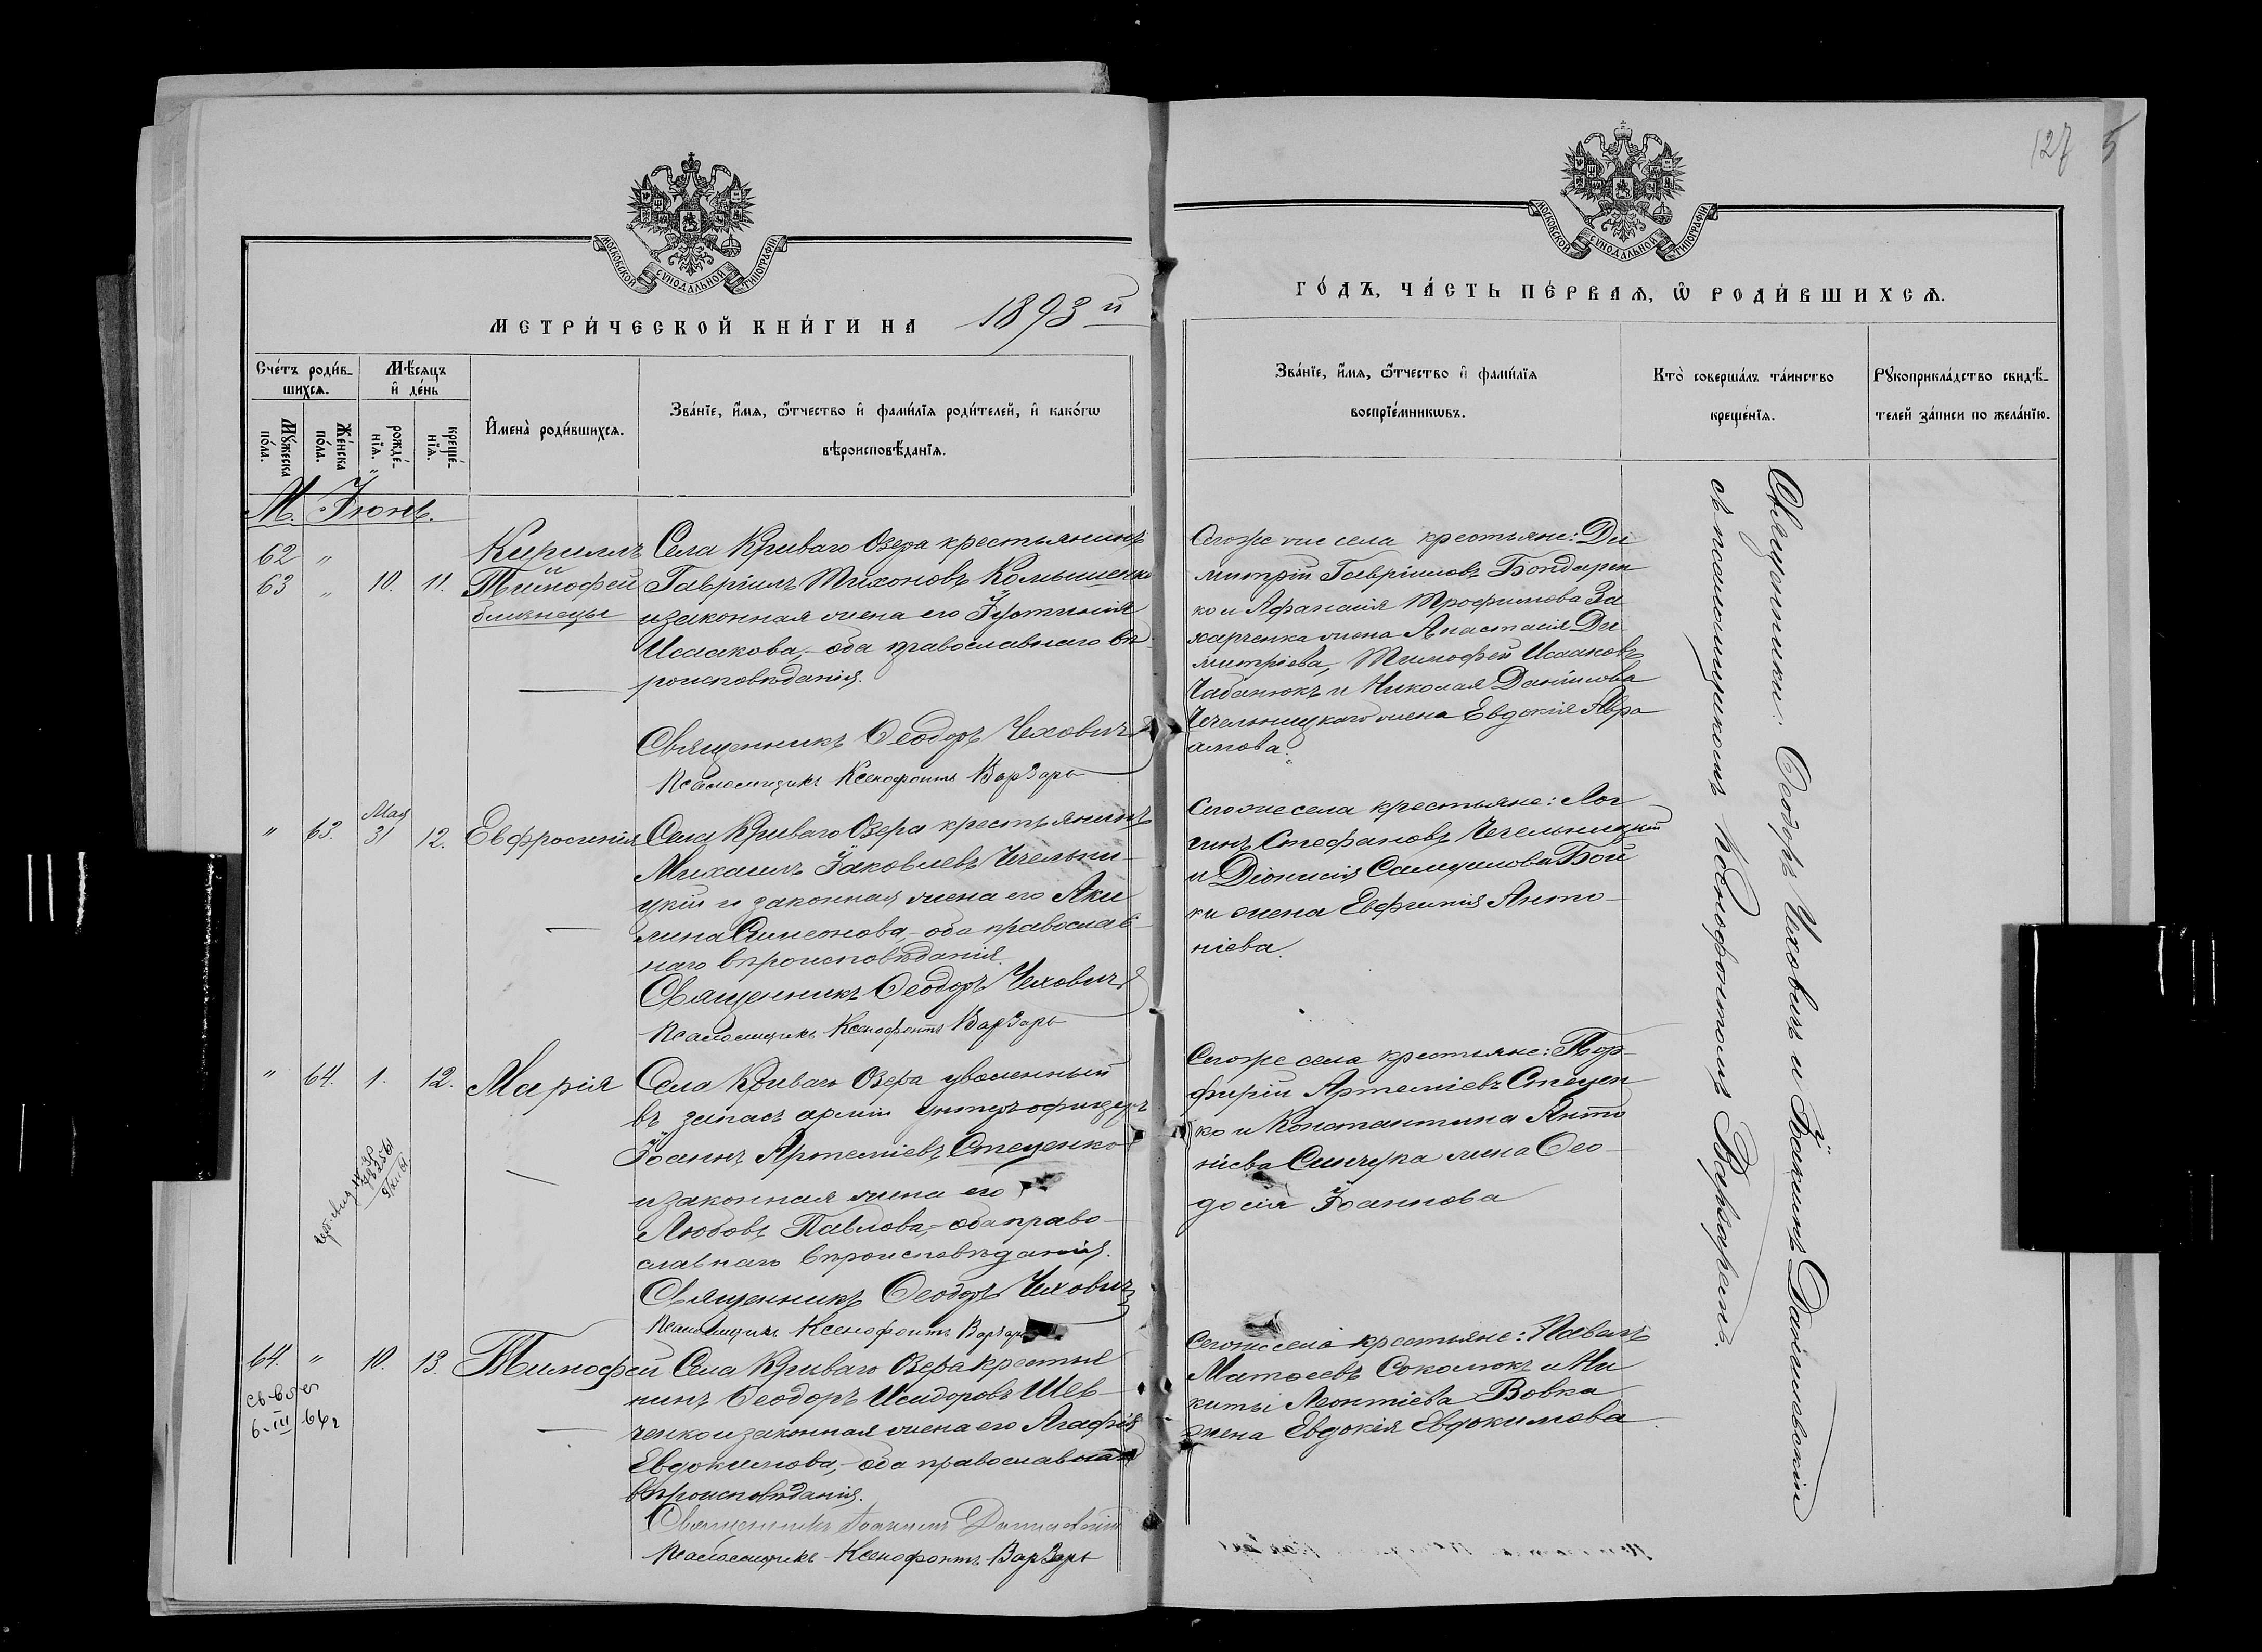 127
5
МОСКОВСКОЙ СѴНОДАЛЬНОЙ ТИПОГРАФІИ
МЕТРИ́ЧЕСКОЙ КНИ́ГИ НА 1893й
Сче́тъ роди́в-
шихсѧ.
Мꙋ́жеска
по́ла.
Же́нска
по́ла.
Мѣ́сѧцъ
и҆ де́нь
рожде́-
нїѧ.
креще́-
нїѧ.
И҆мена̀ роди́вшихсѧ.
Зва́нїе, и҆́мѧ, ѻ҆́тчество и҆ фами́лїѧ роди́телей, и҆ како́гѡ
вѣроисповѣ́данїѧ.
М. Іюнь.
62 "
63 " 10. 11.
Кириллъ
и
Тимофей
близнецы
Села Криваго Озера крестьянинъ
Гавріилъ Тихоновъ Комышенко
и законная жена его Іустинія
Исаакова,- оба православнаго вѣ-
роисповѣданія.
Священникъ Ѳеодоръ Чеховичъ
Псаломщикъ Ксенофонтъ Варзарь
" 63. Мая 31 12. Евфросинія
Села Криваго Озера крестьянинъ
Михаилъ Іаковлевъ Чечельни-
цкій и законная жена его Аки
лина Симеонова,- оба православ-
наго вѣроисповѣданія.
Священникъ Ѳеодоръ Чеховичъ
Псаломщикъ Ксенофонтъ Варзарь
" 64. 1. 12. Марія
Села Криваго Озера уволенный
въ запасъ арміи унтеръ-офицеръ
Іоаннъ Артеміевъ Стеценко
и законная жена его
Любовь Павлова,- оба право-
славнаго вѣроисповѣданія.
Священникъ Ѳеодоръ Чеховичъ
Псаломщикъ Ксенофонтъ Варзарь
64. " 10. 13. Тимофей
6-III 66г
Села Криваго Озера крестья
нинъ Ѳеодоръ Исидоровъ Шев-
ченко и законная жена его Агафія
Евдокимова,- оба православнаго
вѣроисповѣданія.
Священникъ Іоакимъ
Псаломщикъ Ксенофонтъ Варзарь
МОСКОВСКОЙ СѴНОДАЛЬНОЙ ТИПОГРАФІИ
ГО́ДЪ, ЧА́СТЬ ПЕ́РВАѦ, Ѡ҆ РОДИ́ВШИХСѦ.
Зва́нїе, и҆́мѧ, ѻ҆́тчество и҆ фами́лїѧ
воспрїе́мникѡвъ.
Кто̀ соверша́лъ та́инство
креще́нїѧ.
Рꙋкоприкла́дство свидѣ́-
телей за́писи по жела́нїю.
Сего же села крестьяне: Ди
митрій Гавріиловъ Бондарен
ко и Афанасія Трофимова За
харченка жена Анастасія Ди-
митріева, Тимофей Исааковъ
Чабанюкъ и Николая Даніилова
Чечельницкаго жена Евдокія Авра
амова.
Сего же села крестьяне: Лог
гинъ Стефановъ Чечельницкій
и Діонисія Самуилова Бой
ки жена Евфимія Анто-
ніева.
Сего же села крестьяне: Пор-
фирій Артеміевъ Стецен
ко и Константина Анто
ніева Синчука жена Ѳео-
досія Іоаннова
Сего же села крестьяне: Павелъ
Матѳеевъ Соколюкъ и Ни
киты Леонтіева Вовка
жена Евдокія Евдокимова.
Священники: Ѳеодоръ Чеховичъ и Іоакимъ Даниловскій
съ псаломщикомъ Ксенофонтомъ Варзаремъ.